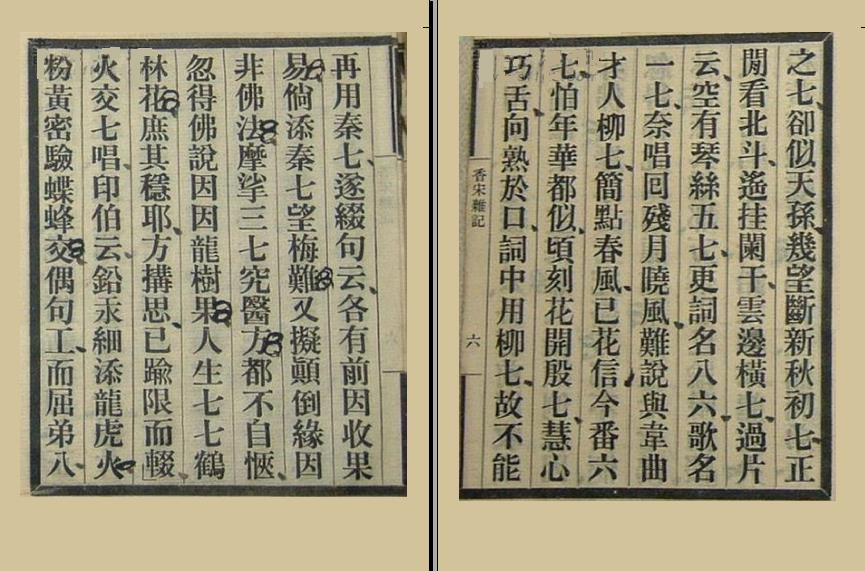 之七卻似天孫幾望斷新秋初七正
閒看北斗遙挂闌干雲邊橫七過片
云空有琴絲五七更詞名八六歌名
一七奈唱回殘月曉風難說與韋曲
才人柳七簡點春風已花信今番六
七怕年華都似頃刻花開殷七慧心
巧舌向熟於口詞中用柳七故不能
香宋雜記
六
再用秦七遂綴句云各有前因收果
易倘添秦七望梅難又擬顛倒緣因
非佛法摩挲三七究醫方都不自愜
忽得佛說因因龍樹果人生七七鶴
林花庶其穩耶方搆思已踰限而輟
火交七唱印伯云鉛汞細添龍虎火
粉黃密驗蝶蜂交偶句工而屈弟八